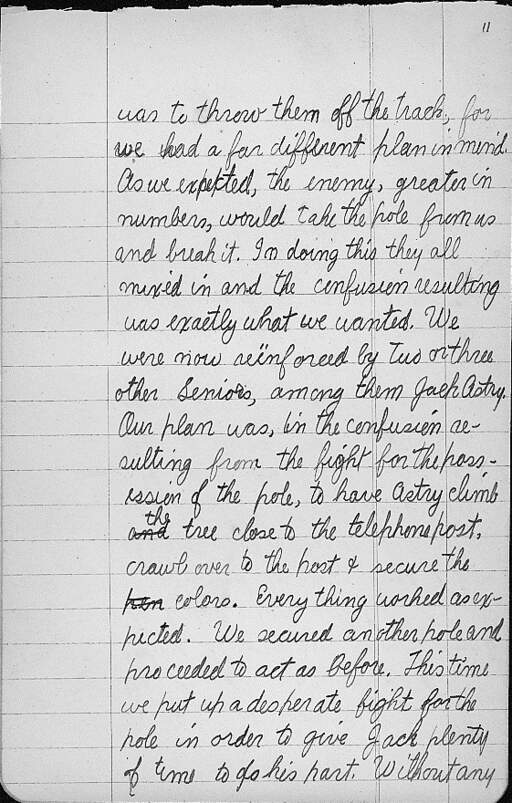 11
was to throw them off the track, for
we had a far different plan in mind.
As we expected, the enemy, greater in
numbers, would take the pole from us
and break it. In doing this they all
mixed in and the confusion resulting
was exactly what we wanted. We
were now reïnforced by two or three
other Seniors, among them Jack Astry.
Our plan was, in the confusion re-
sulting from the fight for the poss-
ession of the pole, to have Astry climb
and the tree close to the telephone post,
crawl over to the post & secure the
pen colors. Every thing worked as ex-
pected. We secured another pole and
proceeded to act as before. This time
we put up a desperate fight for the
pole in order to give Jack plenty
of time to do his part. Without any